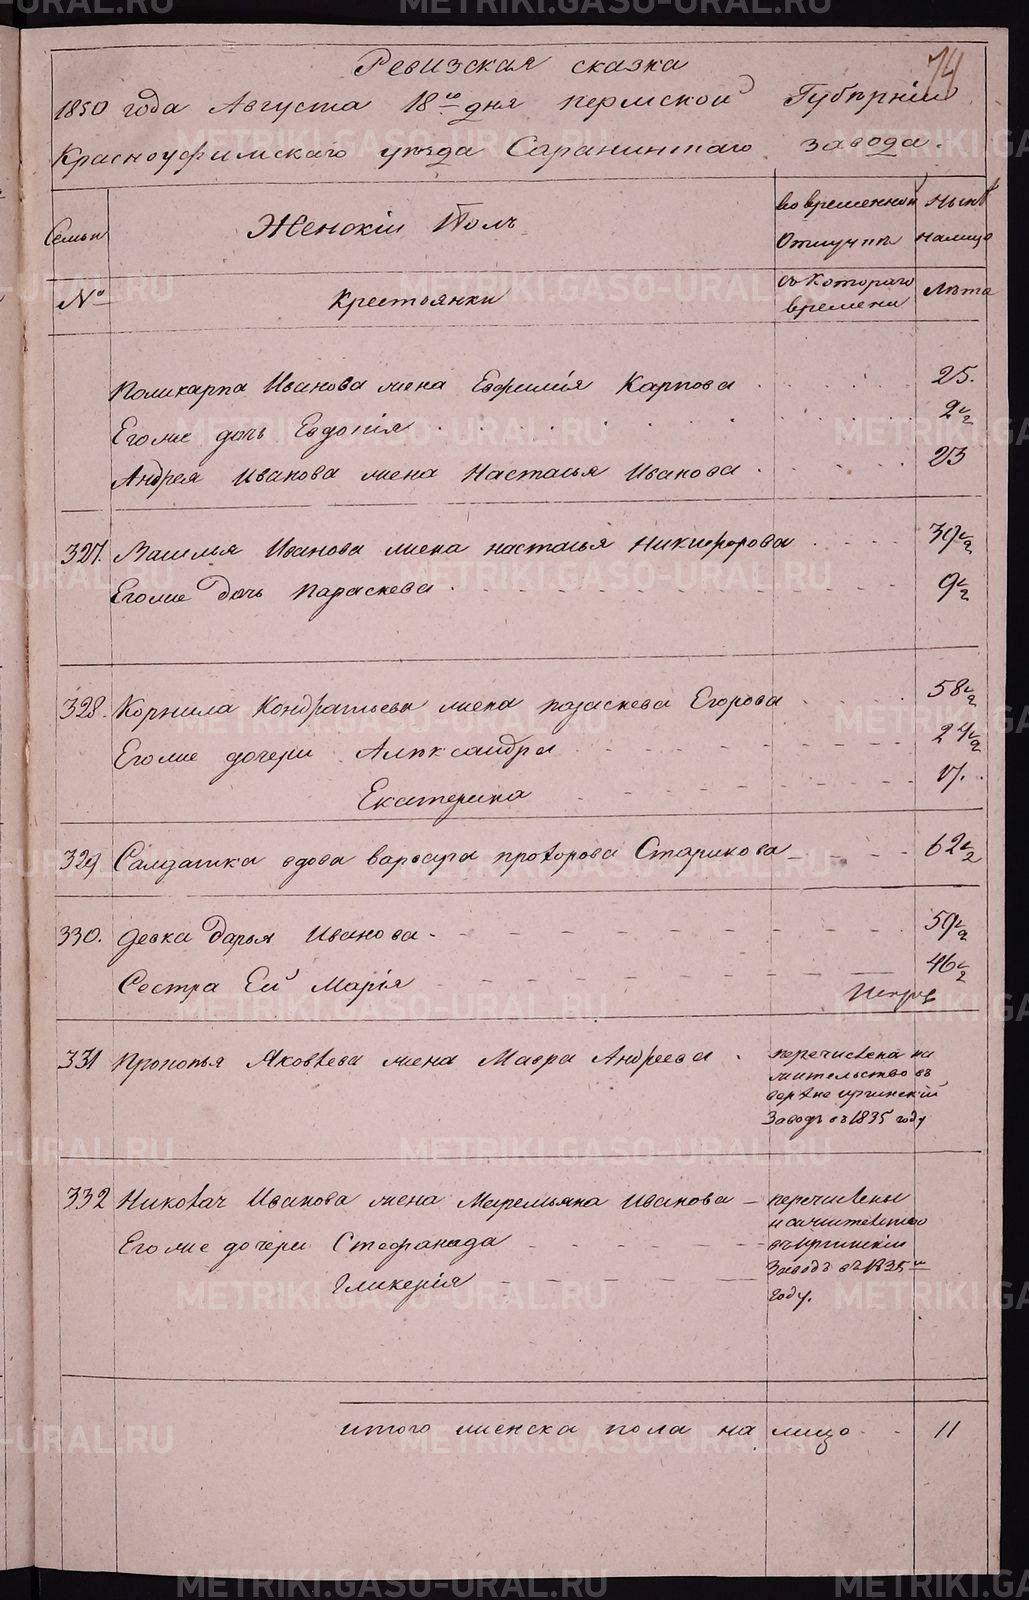 74
Ревизская сказка
1850 года Августа 18го дня пермской Губернiи
Красноуфимскаго уезда Саранинскаго завода.
Семьи
Женскiй Полъ
во временной отлучке
ныне налицо
№
Крестьянки
съ котораго времени
Лета
Поликарпа Иванова жена Евфимiя Карпова 25.
Его же дочь Евдокiя 2 1/2
Андрея Иванова жена Насталья Иванова 23
327. Василья Иванова жена насталья Никифорова 39 1/2
Его же Дочь Параскева 9 1/2
328. Корнила Кондратьева жена параскева Егорова 58 1/2
Его же дочери Александра 24 1/2
Екатерина 17.
329 Салдатка вдова варвара прохорова Старикова 62 1/2
330. девка Дарья Иванова 59 1/2
Сестра Ей Марiя 46 1/2
331 Прокопья Яковлева жена Мавра Андреева
перечислена на
жительство въ
верхне иргинскiй
Заводъ въ 1835 году
332 Николая Иванова жена Маремьяна Иванова
перечислены
Его же дочери Стефанида
въ иргинскiй
Заводъ въ 1835м
Гликерiя
году.
итого женска пола на лицо 11
METRIKI.GASO-URAL.RU